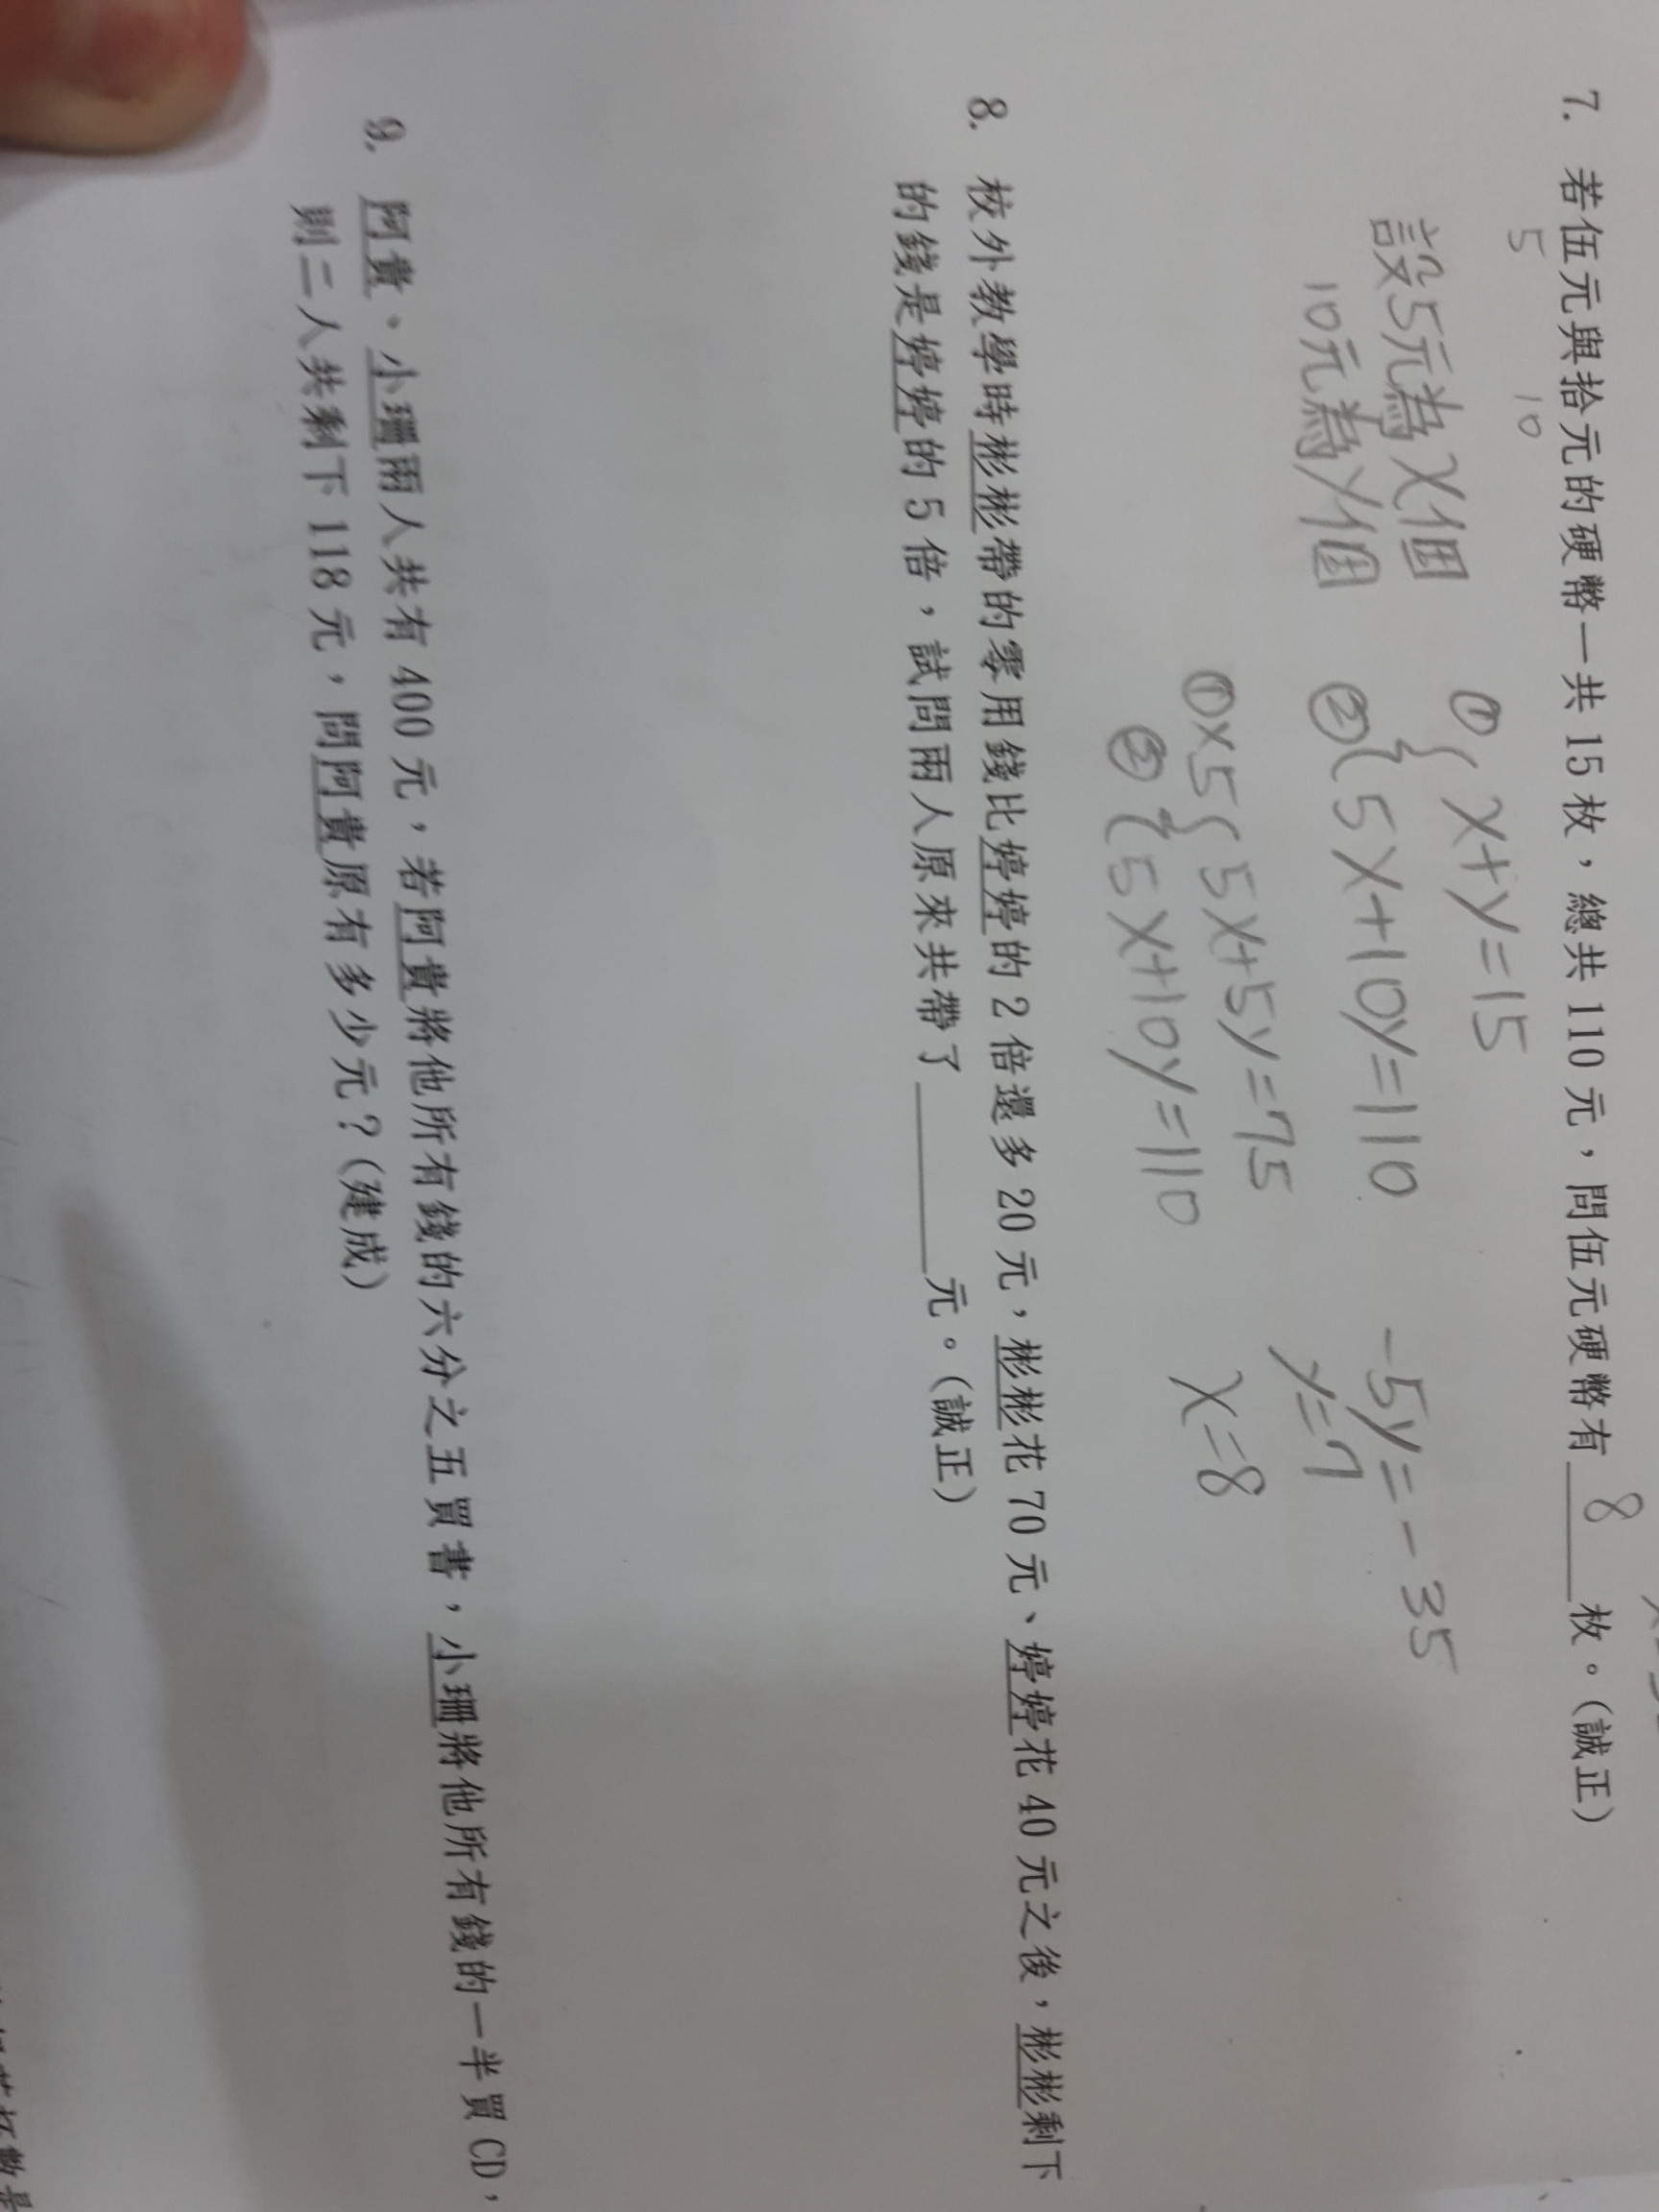 7. 若伍元與拾元的硬幣一共 15 枚，總共 110 元，問伍元硬幣有 8 枚。(誠正)
5 10
設5元為X個
10元為y個
① { x+y=15
② { 5x+10y=110
①×5 { 5x+5y=75
② { 5x+10y=110
-5y=-35
y=7
x=8
8. 校外教學時彬彬帶的零用錢比婷婷的 2 倍還多 20 元，彬彬花 70 元、婷婷花 40 元之後，彬彬剩下
的錢是婷婷的 5 倍，試問兩人原來共帶了______元。(誠正)
9. 阿貴、小珊兩人共有 400 元，若阿貴將他所有錢的六分之五買書，小珊將他所有錢的一半買 CD，
則二人共剩下 118 元，問阿貴原有多少元？(建成)